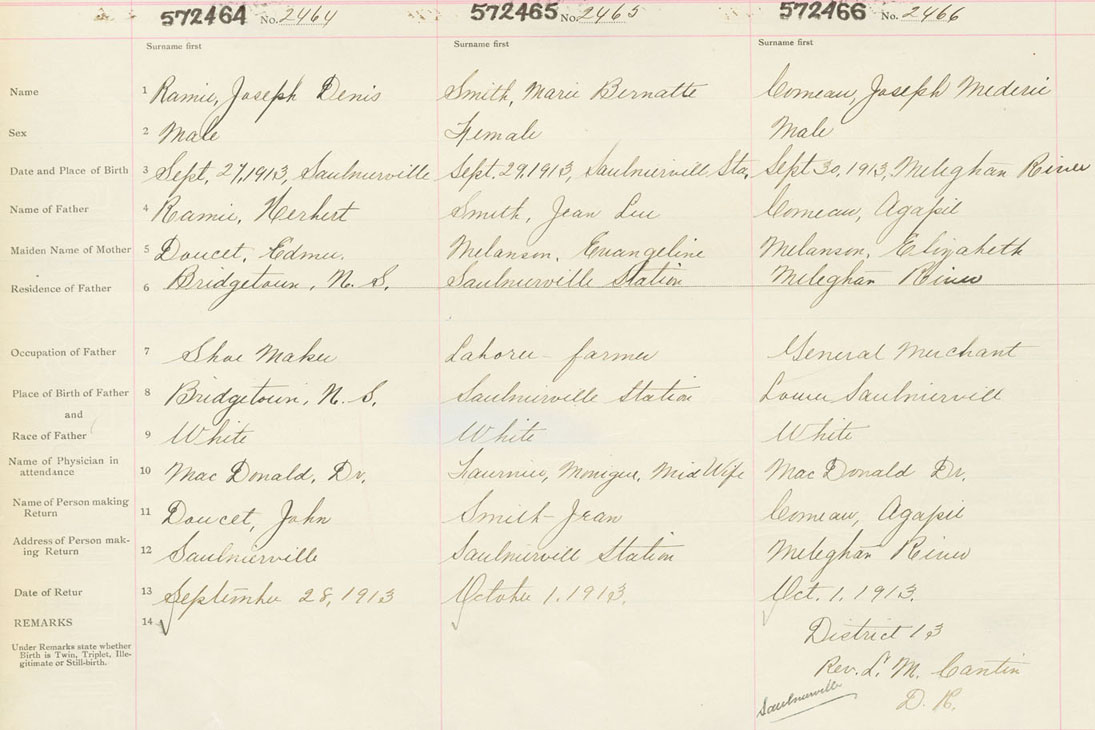 572464 No. 2464 572465 No. 2465 572466 No. 2466
Surname first Surname first Surname first
Name 1 Ramie, Joseph Denis Smith, Marie Bernatte Comeau, Joseph Mederic
Sex 2 Male Female Male
Date and Place of Birth 3 Sept. 27, 1913, Saulnierville Sept. 29, 1913, Saulniervill Sta. Sept 30, 1913, Meteghan River
Name of Father 4 Ramie, Herbert Smith, Jean Luc Comeau, Agapit
Maiden Name of Mother 5 Doucet, Edmee. Melanson, Evangeline Melanson, Elizabeth
Residence of Father 6 Bridgetown, N. S. Saulnierville Station Meteghan River
Occupation of Father 7 Shoe Maker Laborer - farmer General Merchant
Place of Birth of Father 8 Bridgetown, N. S. Saulnierville Station Lower Saulniervill
and
Race of Father 9 White White White
Name of Physician in
attendance 10 Mac Donald, Dr. Monique, Mid Wife Mac Donald Dr.
Name of Person making
Return 11 Doucet, John Smith Jean Comeau, Agapit
Address of Person mak-
ing Return 12 Saulnierville Saulniervill Station Meteghan River
Date of Retur 13 September 28, 1913 October 1, 1913. Oct. 1, 1913.
REMARKS 14
Under Remarks state whether
Birth is Twin, Triplet, Ille-
gitimate or Still-birth.
District 13
Rev. L. M. Cantin
Saulnierville D. R.